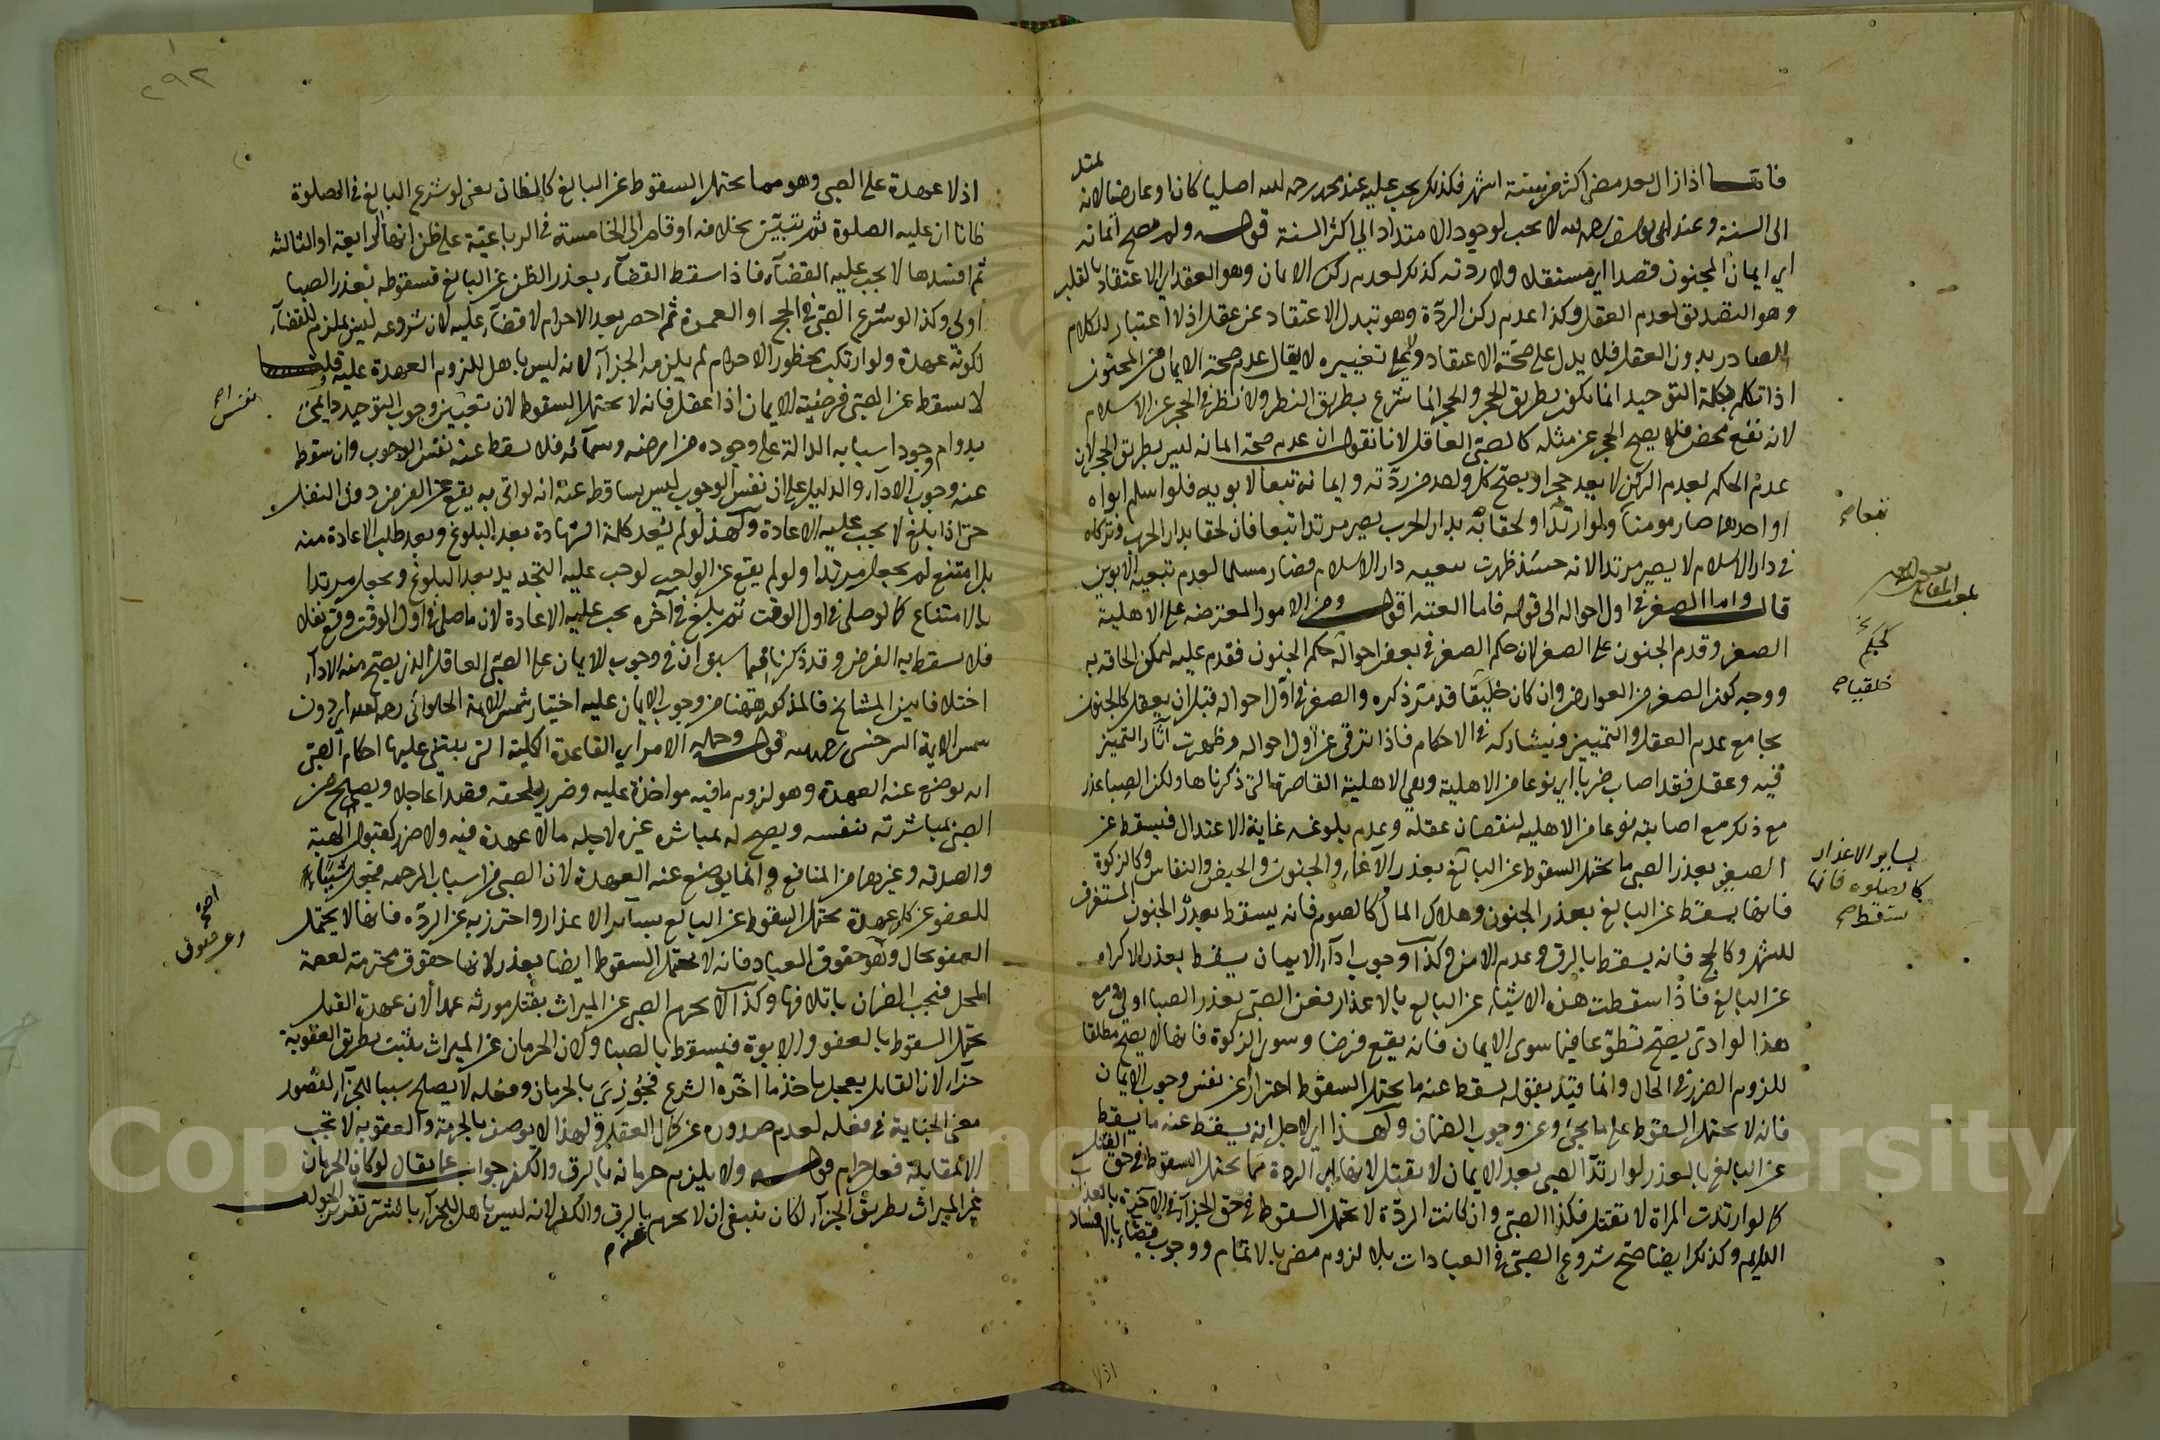 فاما اذا زال بعد مضى اكثر من ستة اشهر فكذلك يجب عليه عند محمد رحمه الله اصليا كان او عارضا لانه يمتد
الى السنة وعند ابى يوسف رحمه الله لا يجب لوجود الامتداد الى اكثر السنة قوله ولم يصح ايمانه
اى ايمان المجنون قصدا اى مستقلا ولا ردته كذلك لعدم ركن الايمان وهو العقد اى الاعتقاد بالقلب
وهو التصديق لعدم العقل وكذا عدم ركن الردة وهو تبدل الاعتقاد عن عقل اذ لا اعتبار للكلام
الصادر بدون العقل فلا يدل على صحة الاعتقاد ولا على تغييره لا يقال عدم صحة الايمان من المجنون
اذا تكلم بكلمة التوحيد انما يكون بطريق الحجر والحجر انما شرع بطريق النظر ولا نظر فى الحجر عن الاسلام
لانه نفع محض فلا يصح الحجر عن مثله كالصبى العاقل لانا نقول ان عدم صحة ايمانه ليس بطريق الحجر لان
عدم الحكم لعدم الركن لا يعد حجرا ويصح كل واحد من ردته وايمانه تبعا لابويه فلو اسلم ابواه
او احدهما صار مؤمنا ولو ارتدا ولحقا به بدار الحرب يصير مرتدا تبعا فان لحقا بدار الحرب وتركاه
فى دار الاسلام لا يصير مرتدا لانه حينئذ ظهرت تبعيه دار الاسلام فصار مسلما لعدم تبعية الابوين
قال واما الصغر فى اول احواله الى قوله فاما العته اقول ومن الامور المعترضه على الاهلية
الصغر وقدم الجنون على الصغر لان حكم الصغر فى بعض احواله حكم الجنون فقدم عليه ليمكن الحاقه به
ووجه كون الصغر من العوارض وان كان خلقيا قد مر ذكره والصغر فى اول احواله قبل ان يعقل كالجنون
بجامع عدم العقل والتمييز فيشاركه فى الاحكام فاذا ترقى عن اول احواله وظهرت آثار التميز
فيه وعقل فقد اصاب ضربا اى نوعا من الاهلية وهى الاهلية القاصرة التى ذكرناها ولكن الصبا عذر
مع ذلك مع اصابته نوعا من الاهليه لنقصان عقله وعدم بلوغه غاية الاعتدال فيسقط عن
الصغير بعذر الصبى ما يحتمل السقوط عن البالغ بعذر الاغماء والجنون والحيض والنفاس وكالزكوة
فانها يسقط عن البالغ بعذر الجنون وهلاك المال وكالصوم فانه يسقط بعذر الجنون المستغرق
للشهر وكالحج فانه يسقط بالرق وعدم الامن وكذا وجوب اداء الايمان يسقط بعذر الاكراه
عن البالغ فاذا سقطت هذه الاشياء عن البالغ بالاعذار فعن الصبى بعذر الصبا اولى ومع
هذا لو ادى يصح تطوعا فيما سوى الايمان فانه يقع فرضا وسوى الزكوة فانها لا يصح مطلقا
للزوم الضرر فى الحال وانما قيد بقوله يسقط عنه ما يحتمل السقوط احترازا عن نفس وجوب الايمان
فانه لا يحتمل السقوط على ما يجئ وعن وجوب الضمان ولهذا اى لاجل انه يسقط عنه ما يسقط
عن البالغ بالعذر لو ارتد الصبى بعد الايمان لا يقتل لانها اى الردة مما يحتمل السقوط فى حق القتل
كما لو ارتدت المراة لا تقتل فكذا الصبى وان كانت الردة لا تحتمل السقوط فى حق الجزاء فى الاخرة بالعذاب
الاليم وكذلك ايضا صح شروع الصبى فى العبادات بلا لزوم مضى بالاتمام ووجوب قضاء بالافساد
تبعا صح
لحكم
خلقيا صح
بساير الاعذار
كالصلوه فانها
تسقط صح
اذ لا
٢٩٢
اذ لا عهدة على الصبى وهو مما يحتمل السقوط عن البالغ كالظان يعنى لو شرع البالغ فى الصلوة
ظانا ان عليه الصلوة ثم تبين بخلافه او قام الى الخامسة فى الرباعية على ظن انها الرابعة او الثالثه
ثم افسدها لا يجب عليه القضاء فاذا سقط القضاء بعذر الظن عن البالغ فسقوطه بعذر الصبا
اولى وكذا لو شرع الصبى فى الحج او العمرة ثم احصر بعد الاحرام لا قضاء عليه لان شروعه ليس بملزم للقضاء
لكونه عهدة ولو ارتكب محظور الاحرام لم يلزمه الجزاء لانه ليس باهل للزوم العهدة عليه قلنا
لا يسقط عن الصبى فرضية الايمان اذا عقل فانه لا يحتمل السقوط لان وجوب التوحيد دايمى
بدوام وجود اسبابه الدالة على وجوده من ارضه وسمائه فلا يسقط عنه نفس الوجوب وان سقط
عنه وجوب الاداء والدليل على ان نفس الوجوب ليس بساقط عنه انه لو اتى به يقع عن الفرض دون النفل
حتى اذا بلغ لا يجب عليه الاعادة ولهذا لو لم يعد كلمة الشهادة بعد البلوغ وبعد طلب الاعادة منه
بل امتنع لم يجعل مرتدا ولو لم يقع عن الواجب لوجب عليه التجديد بعد البلوغ ويجعل مرتدا
بالامتناع كما لو صلى فى اول الوقت ثم بلغ فى آخره يجب عليه الاعادة لان ما صلى فى اول الوقت وقع نفلا
فلا يسقط به الفرض وقد ذكرنا فيما سبق ان فى وجوب الايمان على الصبى العاقل الذى يصح منه الاداء
اختلافا بين المشايخ فالمذكور ههنا من وجوب الايمان عليه اختيار شمس الائمة الحلوائى رحمه الله دون
شمس الايمة السرخسى رحمه الله قوله وجملة الامر اى القاعدة الكلية التى يبتنى عليها احكام الصبى
انه يوضع عنه العهدة وهو لزوم ما فيه مواخذة عليه وضرر يلحقه فقدا عاجلا ويصح من
الصبى بمباشرته بنفسه ويصح له بمباشرة غيره لاجله ما لا عهدة فيه ولا ضرر كقبول الهبة
والصدقه وغيرهما من المنافع وانما يوضع عنه العهدة لان الصبى من اسباب المرحمه فجعل سببا
للعفو عن كل عهدة يحتمل السقوط عن البالغ بسائر الاعذار واحترز به عن الردة فانها لا يحتمل
العفو بحال وعن حقوق العباد فانه لا يحتمل السقوط ايضا بعذر لانها حقوق محترمة لعصمة
المحل فيجب الضمان باتلافها وكذا لا يحرم الصبى عن الميراث بقتل مورثه عمدا لان عهدة القتل
يحتمل السقوط بالعفو والابوة فيسقط بالصبا وكان الحرمان عن الميراث يثبت بطريق العقوبة
جزاء لان القاتل يعجل باخذ ما اخره الشرع فجوزى بالحرمان وفعله لا يصلح سببا للجزاء لقصور
معنى الجناية فى فعله لعدم صدوره عن كمال العقل ولهذا لا يوصف بالحرمة والعقوبه لا تجب
الا بمقابلة فعل حرام قوله ولا يلزم حرمانه بالرق والكفر جواب عما يقال لو كان الحرمان
عن الميراث بطريق الجزاء لكان ينبغى ان لا يحرم بالرق والكفر لانه ليس باهل للجزاء بالشر تقرير الجواب
نفس صح